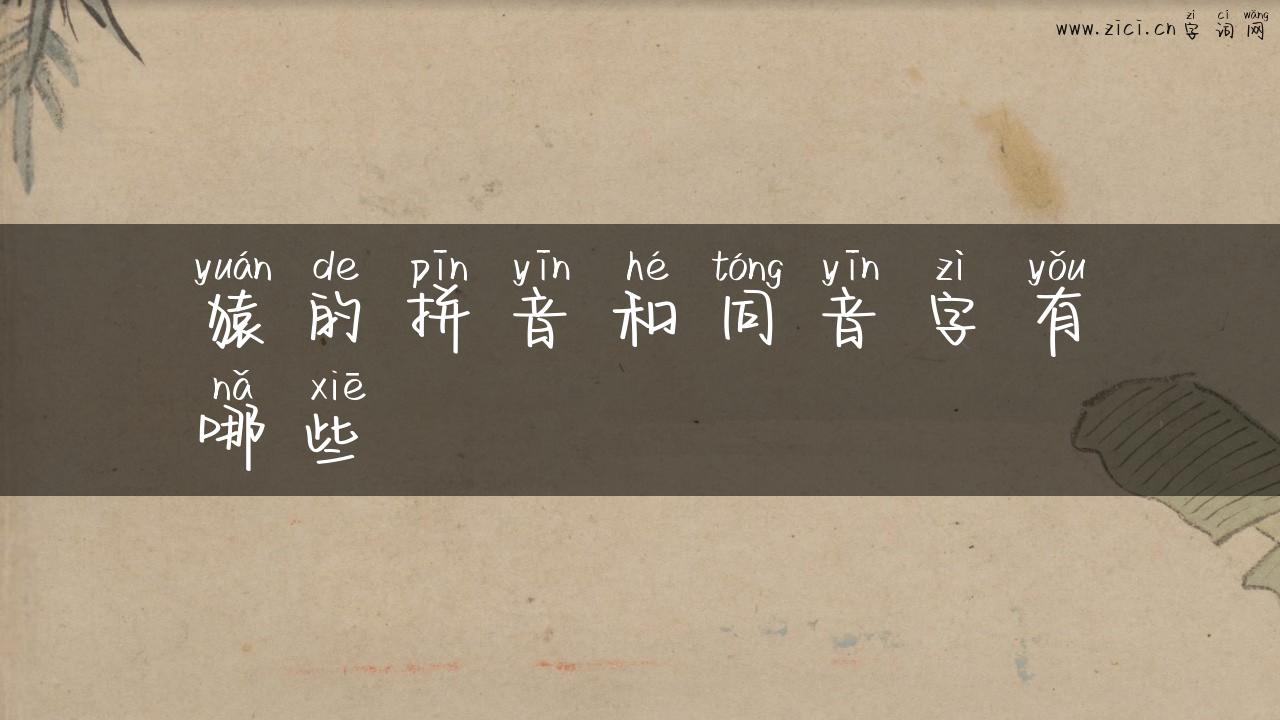 zì cí wǎng
www.zici.cn 字词网
yuán de pīn yīn hé tóng yīn zì yǒu
猿的拼音和同音字有
nǎ xiē
哪些